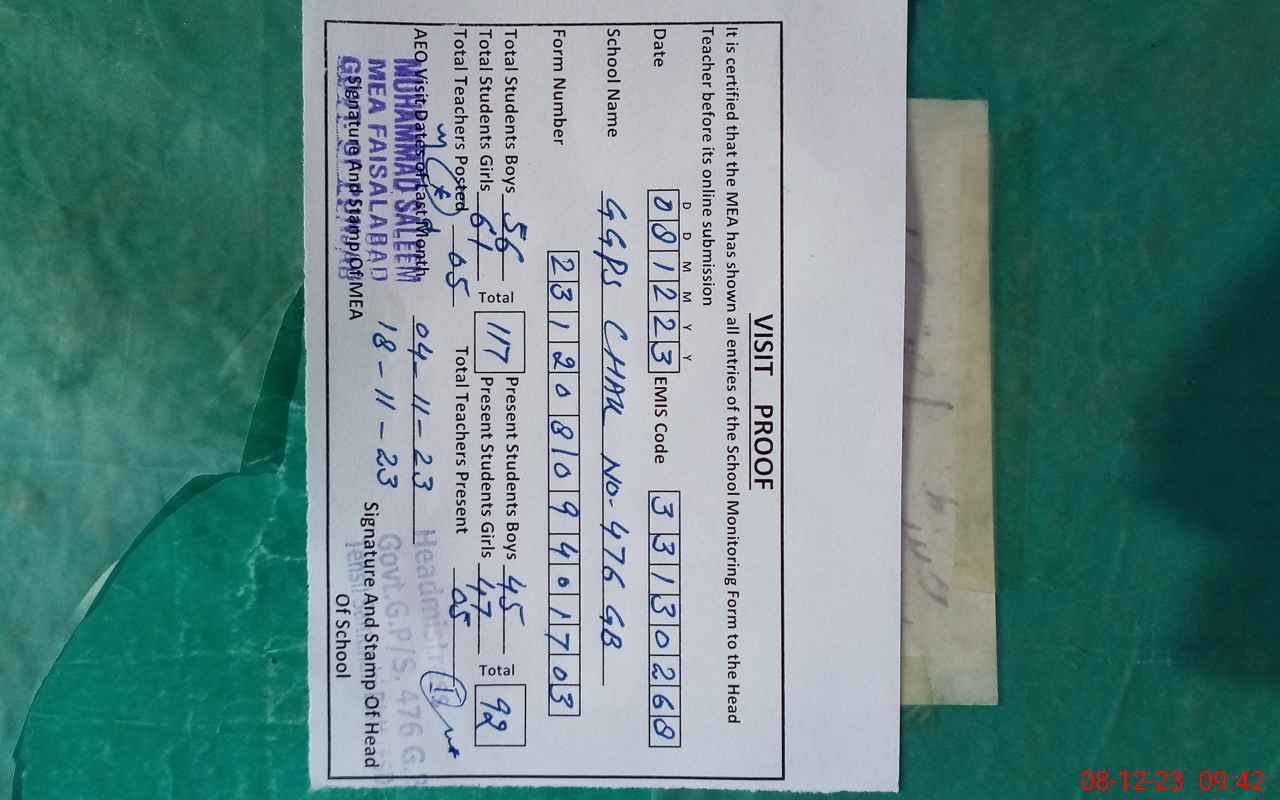 VISIT PROOF
It is certified that the MEA has shown all entries of the School Monitoring Form to the Head
Teacher before its online submission
D D M M Y Y
Date 081223 EMIS Code 33130268
School Name GGPS CHAK NO-476 GB
Form Number 23120809401703
Total Students Boys 56 Total 117 Present Students Boys 45 Total 92
Total Students Girls 61 Present Students Girls 47
Total Teachers Posted 05 Total Teachers Present 05
AEO Visit Dates of Last Month 04-11-23
18-11-23
MUHAMMAD SALEEM
MEA FAISALABAD
Signature And Stamp Of MEA
Headmistress
Govt.G.P/S. 476 G.B
Signature And Stamp Of Head
Of School
08-12-23 09:42